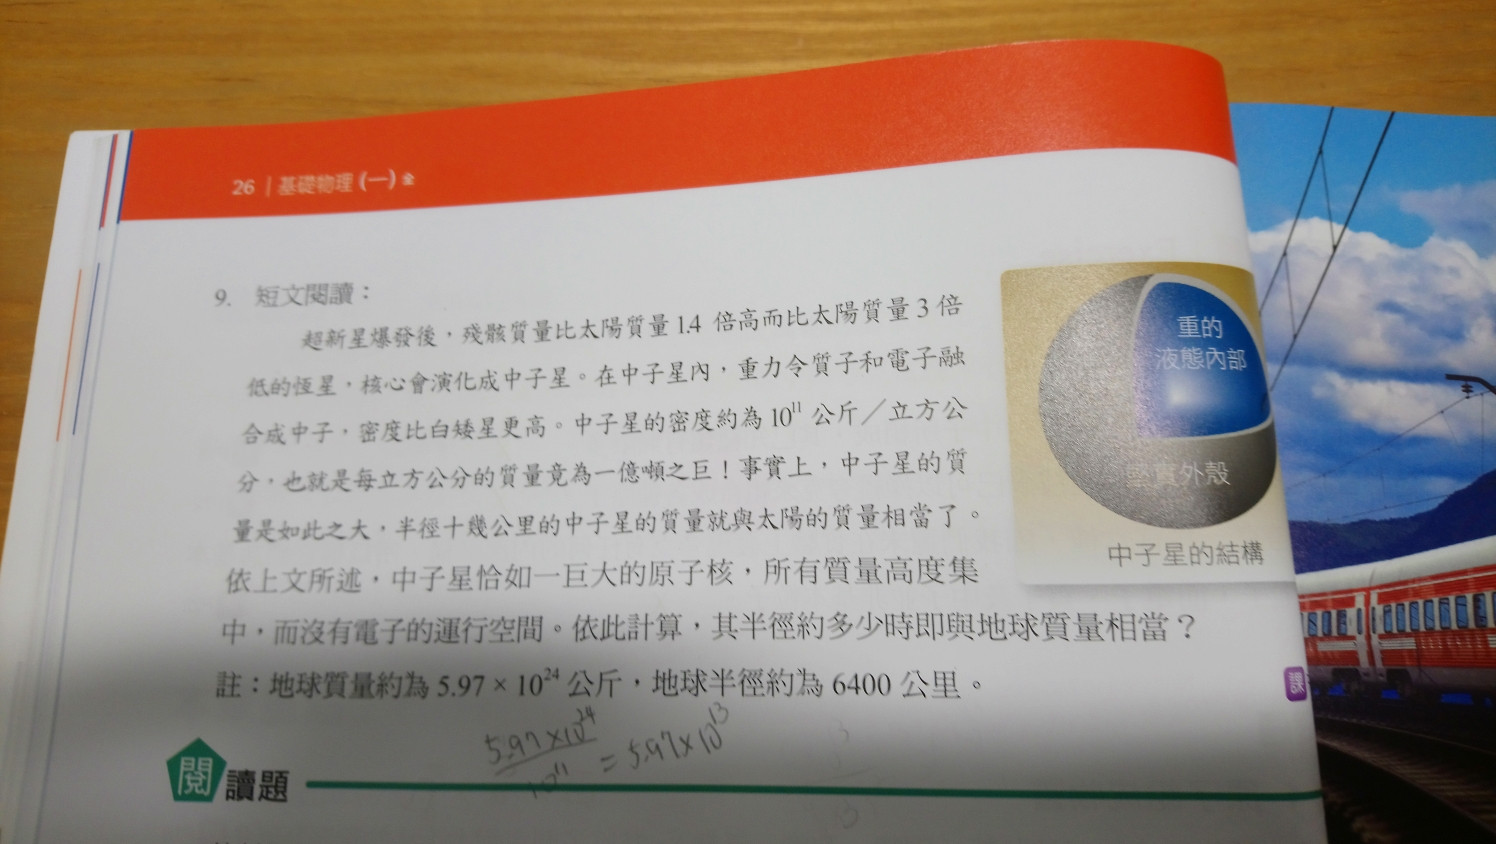 26 | 基礎物理(一)全
9. 短文閱讀：
超新星爆發後，殘骸質量比太陽質量 1.4 倍高而比太陽質量 3 倍
低的恆星，核心會演化成中子星。在中子星內，重力令質子和電子融
合成中子，密度比白矮星更高。中子星的密度約為 10¹¹ 公斤／立方公
分，也就是每立方公分的質量竟為一億噸之巨！事實上，中子星的質
量是如此之大，半徑十幾公里的中子星的質量就與太陽的質量相當了。
依上文所述，中子星恰如一巨大的原子核，所有質量高度集
中，而沒有電子的運行空間。依此計算，其半徑約多少時即與地球質量相當？
註：地球質量約為 5.97 × 10²⁴ 公斤，地球半徑約為 6400 公里。
重的
液態內部
堅實外殼
中子星的結構
5.97×10²⁴
10¹¹
= 5.97×10¹³
閱讀題
課